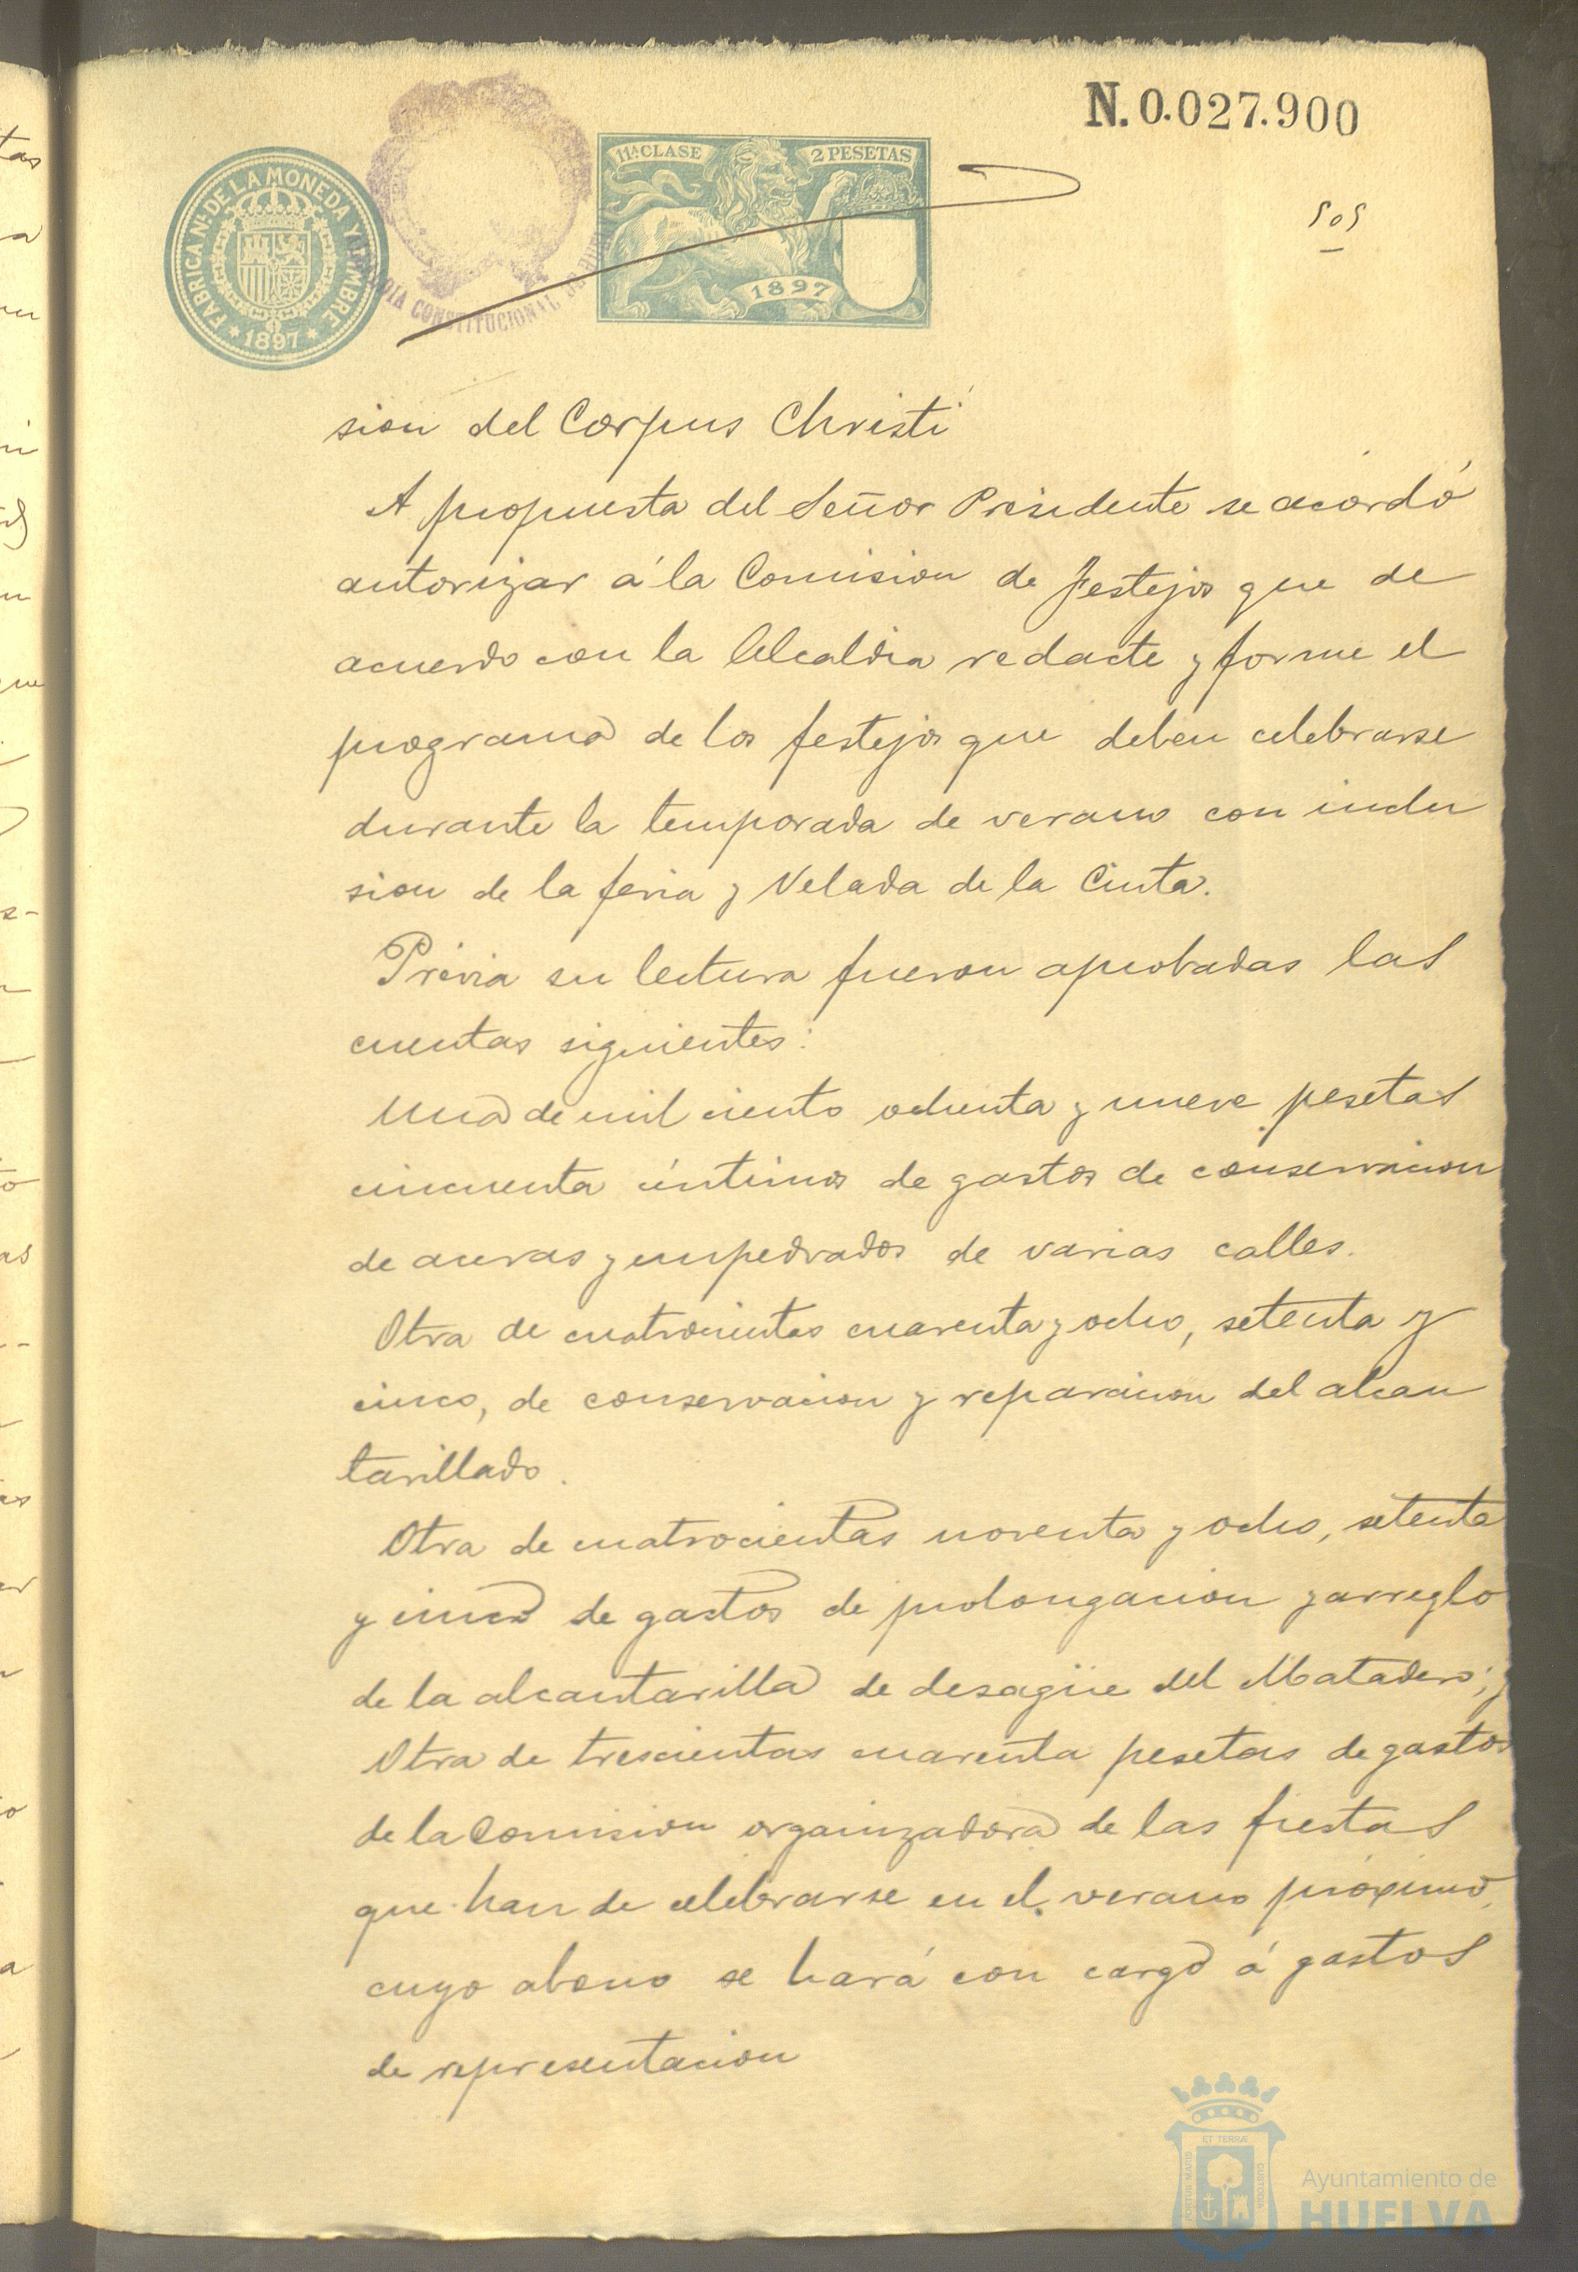 N. 0.027.900
FABRICA NL. DE LA MONEDA Y TIMBRE
* 1897 *
CONSTITUCIONAL
11ª CLASE
2 PESETAS
1897
505
sion del Corpus Christi
A propuesta del Señor Presidente se acordó
autorizar á la Comision de festejos que de
acuerdo con la Alcaldia redacte y forme el
programa de los festejos que deben celebrarse
durante la temporada de verano con inclu
sion de la feria y Velada de la Cinta.
Prévia su lectura fueron aprobadas las
cuentas siguientes:
Una de mil ciento ochenta y nueve pesetas
cincuenta céntimos de gastos de conservacion
de aceras y empedrados de varias calles.
Otra de cuatrocientas cuarenta y ocho, setenta y
cinco, de conservacion y reparacion del alcan
tarillado.
Otra de cuatrocientas noventa y ocho, setenta
y cinco de gastos de prolongacion y arreglo
de la alcantarilla de desagüe del Matadero; y
Otra de trescientas cuarenta pesetas de gastos
de la Comision organizadora de las fiestas
que han de celebrarse en el verano próximo,
cuyo abono se hará con cargo á gastos
de representacion
ET TERRÆ
PORTUS MARIS
CUSTODIA
Ayuntamiento de
HUELVA